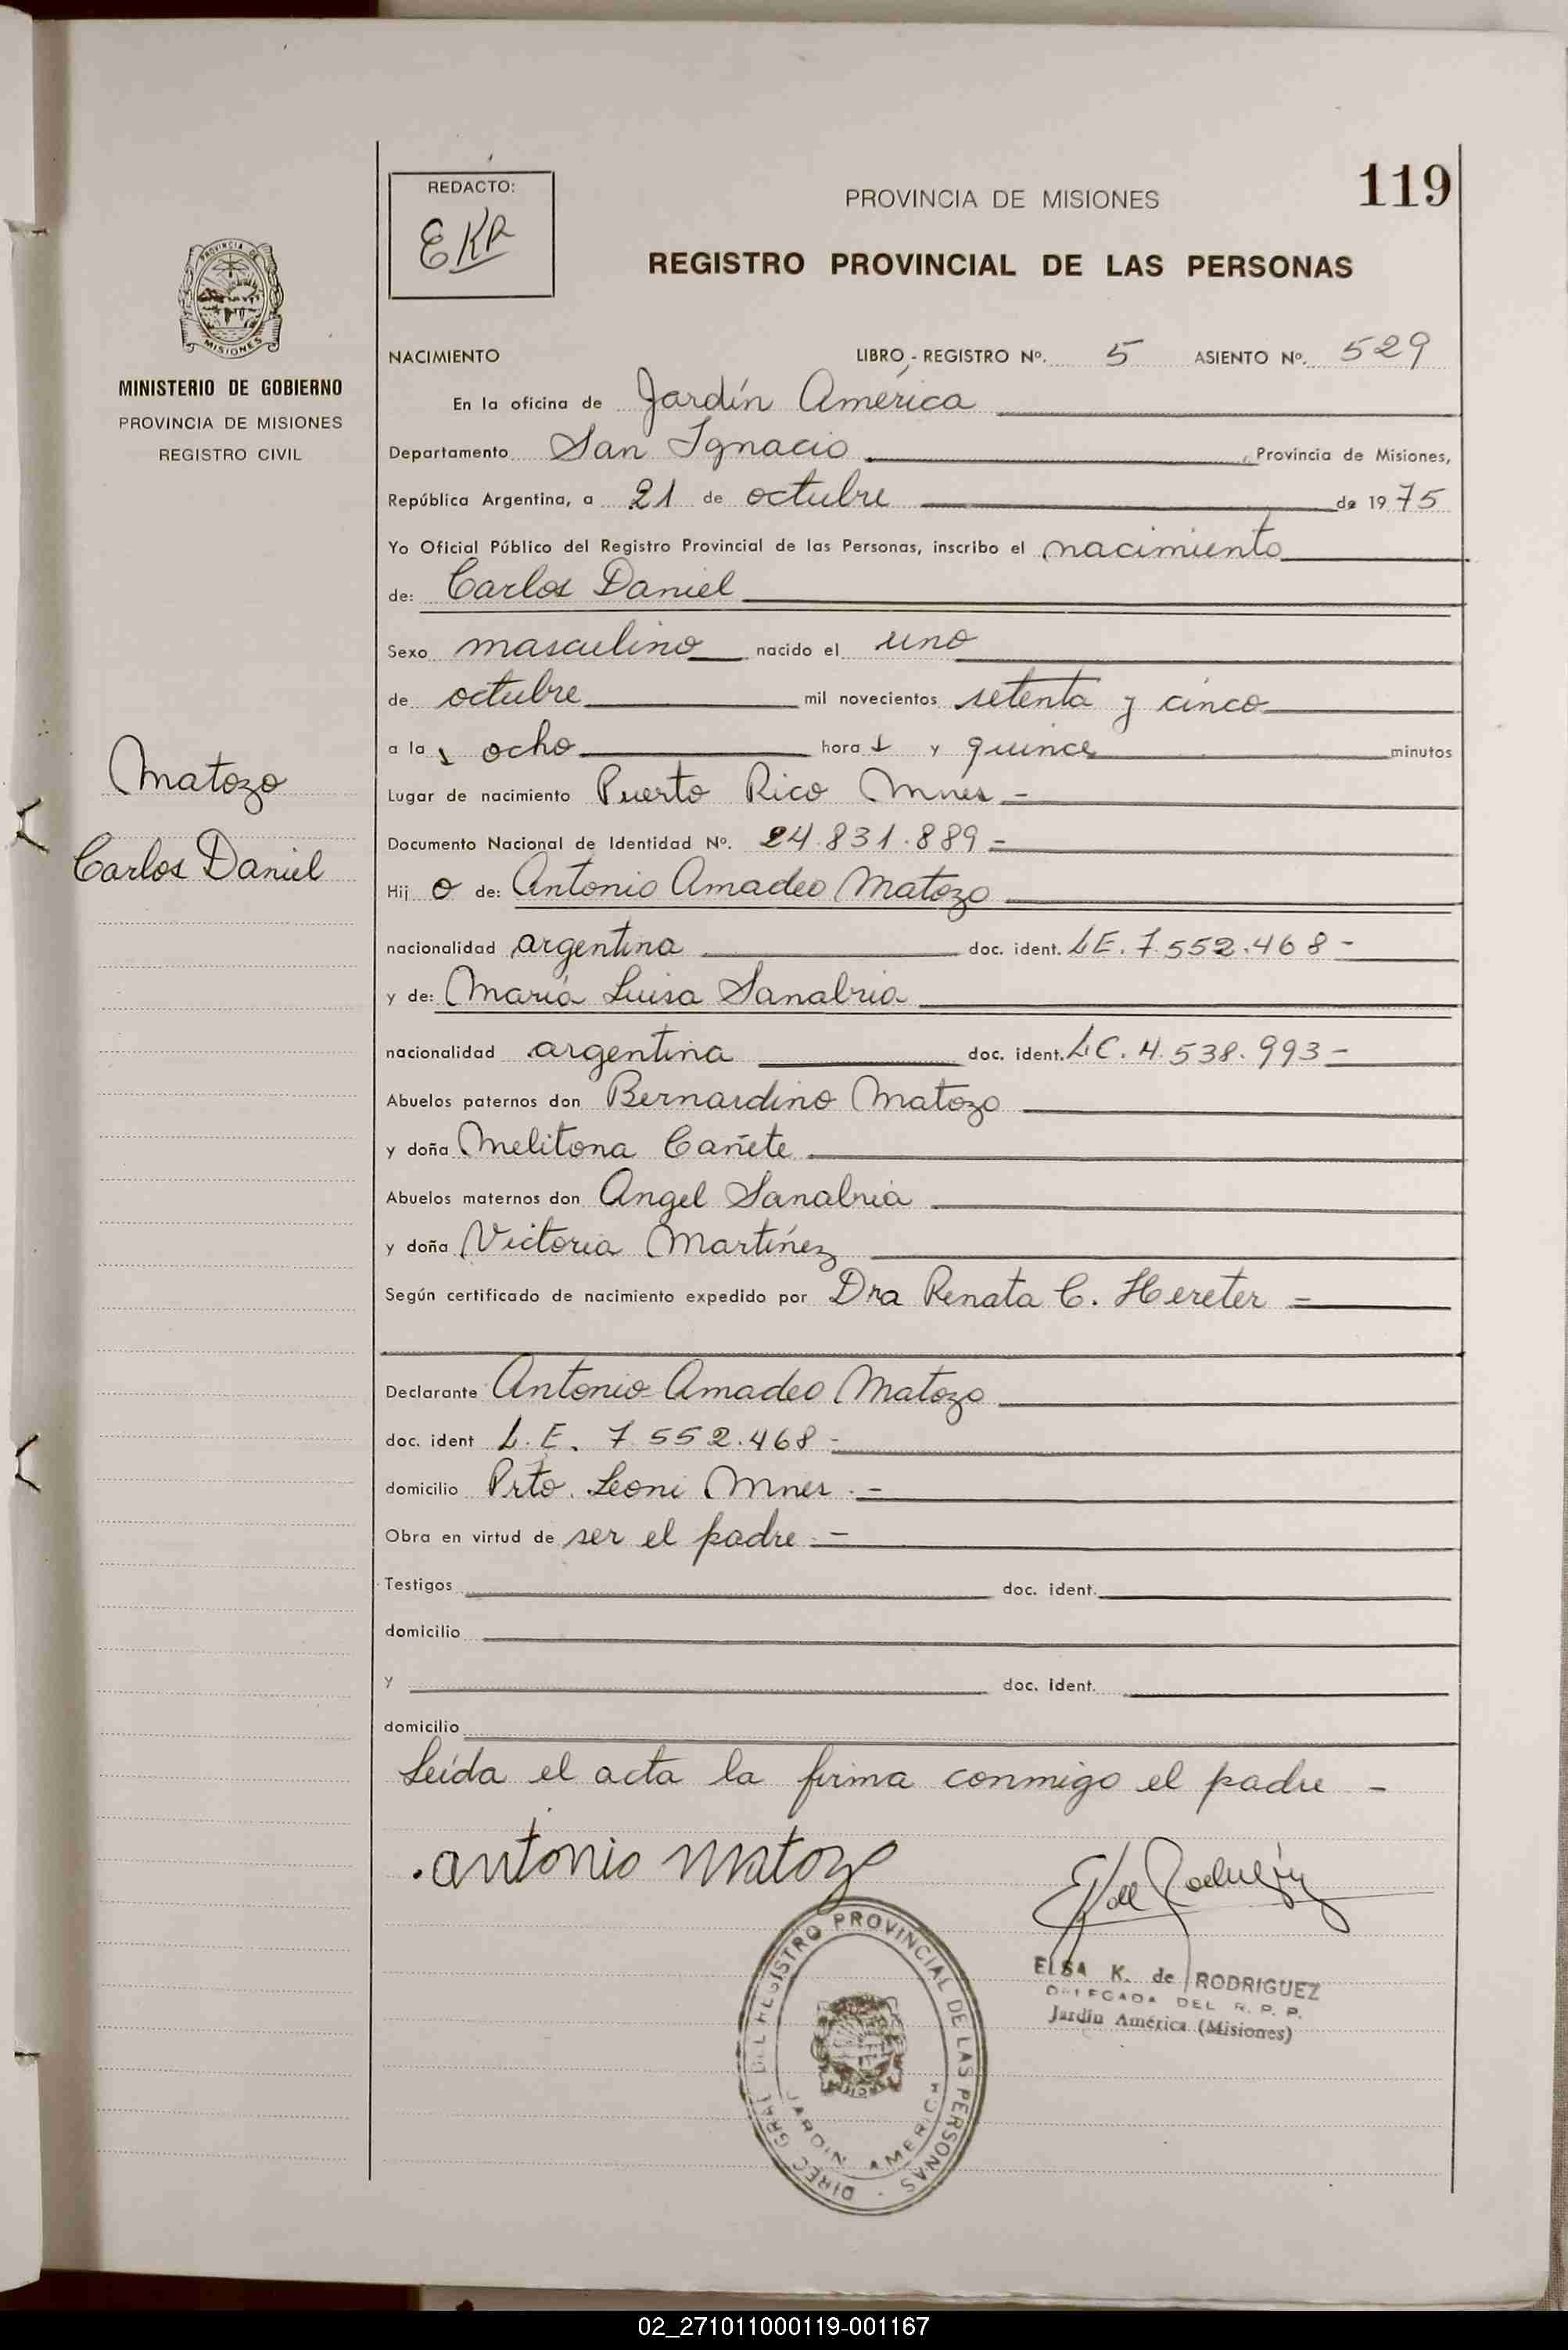 119
REDACTO:
EKR
PROVINCIA DE MISIONES
REGISTRO PROVINCIAL DE LAS PERSONAS
PROVINCIA DE
MISIONES
MINISTERIO DE GOBIERNO
PROVINCIA DE MISIONES
REGISTRO CIVIL
Matozo
Carlos Daniel
NACIMIENTO LIBRO - REGISTRO Nº. 5 ASIENTO Nº. 529
En la oficina de Jardín América
Departamento San Ignacio, Provincia de Misiones,
República Argentina, a 21 de octubre de 1975
Yo Oficial Público del Registro Provincial de las Personas, inscribo el nacimiento
de: Carlos Daniel
Sexo masculino nacido el uno
de octubre mil novecientos setenta y cinco
a las ocho horas y quince minutos
Lugar de nacimiento Puerto Rico Mnes -
Documento Nacional de Identidad Nº. 24.831.889 -
Hijo de: Antonio Amadeo Matozo
nacionalidad argentina doc. ident. LE. 7.552.468 -
y de: María Luisa Sanabria
nacionalidad argentina doc. ident. LC. 4.538.993 -
Abuelos paternos don Bernardino Matozo
y doña Melitona Cañete
Abuelos maternos don Angel Sanabria
y doña Victoria Martínez
Según certificado de nacimiento expedido por Dra Renata C. Hereter -
Declarante Antonio Amadeo Matozo
doc. ident L.E. 7.552.468 -
domicilio Prto. Leoni Mnes. -
Obra en virtud de ser el padre. -
Testigos doc. ident.
domicilio
y doc. ident.
domicilio
Leída el acta la firma conmigo el padre -
. antonio matozo
ELSA K. de RODRIGUEZ
DELEGADA DEL R. P. P.
Jardín América (Misiones)
DIREC. GRAL. DEL REGISTRO PROVINCIAL DE LAS PERSONAS
JARDIN AMERICA
02_271011000119-001167